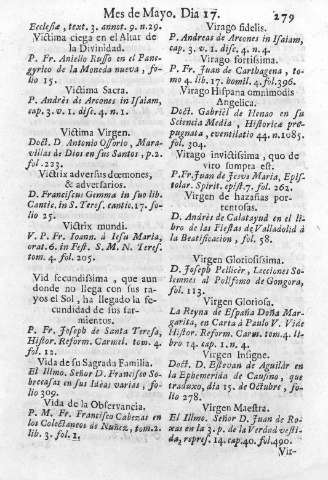 Mes de Mayo. Dia 17. 279
Ecclesiæ, text. 3. annot. 9. n. 29.
Victima ciega en el Altar de
la Divinidad.
P. Fr. Aniello Russo en el Pane-
gyrico de la Moneda nueva, fo-
lio 15.
Victima Sacra.
P. Andrés de Arcones in Isaiam,
cap. 3. v. 1. disc. 4. n. 1.
Victima Virgen.
Doct. D. Antonio Ossorio, Mara-
villas de Dios en sus Santos, p. 2.
fol. 223.
Victrix adversus dœmones,
& adversarios.
D. Franciscus Gemma in suo lib.
Cantic. in S. Teres. cantic. 17. fo-
lio 25.
Victrix mundi.
V. P. Fr. Ioann. à Iesu Maria,
orat. 6. in Fest. S. M. N. Teres.
tom. 4. fol. 205.
Vid fecundissima, que aun
donde no llega con sus ra-
yos el Sol, ha llegado la fe-
cundidad de sus sar-
mientos.
P. Fr. Joseph de Santa Teresa,
Histor. Reform. Carmel. tom. 4.
fol. 12.
Vida de su Sagrada Familia.
El Illmo. Señor D. Francisco So-
brecasas en sus Ideas varias, fo-
lio 309.
Vida de la Observancia.
P. M. Fr. Francisco Cabezas en
los Colectaneos de Nuñez, tom. 2.
lib. 3. fol. 1.
Virago fidelis.
P. Andreas de Arcones in Isaiam,
cap. 3. v. 1. disc. 4. n. 4.
Virago fortissima.
P. Fr. Juan de Carthagena, to-
mo 4. lib. 17. homil. 4. fol. 396.
Virago Hispana omnimodis
Angelica.
Doct. Gabriel de Henao en su
Sciencia Media, Historicæ pro-
pugnata, eventilatio 44. n. 1085.
fol. 304.
Virago invictissima, quo de
viro sumpta est.
P. Fr. Juan de Jesus Maria, Epis-
tolar. Spirit. epist. 7. fol. 262.
Virgen de hazañas por-
tentosas.
D. Andrés de Calatayud en el li-
bro de las Fiestas de Valladolid à
la Beatificacion, fol. 58.
Virgen Gloriosissima.
D. Joseph Pellicèr, Lecciones So-
lemnes al Polifemo de Gongora,
fol. 113.
Virgen Gloriosa.
La Reyna de España Doña Mar-
garita, en Carta à Paulo V. Vide
Histor. Reform. Carm. tom. 4. li-
bro 14. cap. 1. n. 4.
Virgen Insigne.
Doct. D. Estevan de Aguilàr en
la Ephemerida de Causino, que
traduxo, dia 15. de Octubre, fo-
lio 278.
Virgen Maestra.
El Illmo. Señor D. Juan de Ro-
xas en la 3. p. de la Verdad vesti-
da, repres. 14. cap. 40. fol. 490.
Vir-